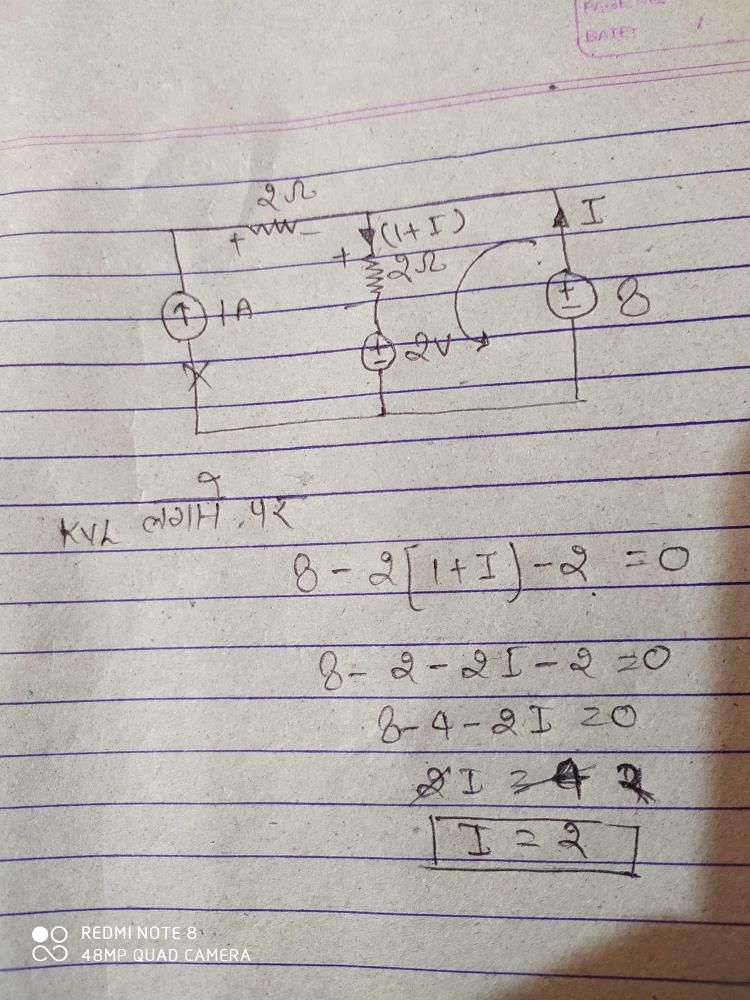 DATE:
2Ω
+ -
(1+I)
I
+
2Ω
1A
2V
8
KVL लगाने पर
8 - 2[1+I) - 2 = 0
8 - 2 - 2I - 2 = 0
8 - 4 - 2I = 0
2I = 4 2
I = 2
REDMI NOTE 8
48MP QUAD CAMERA